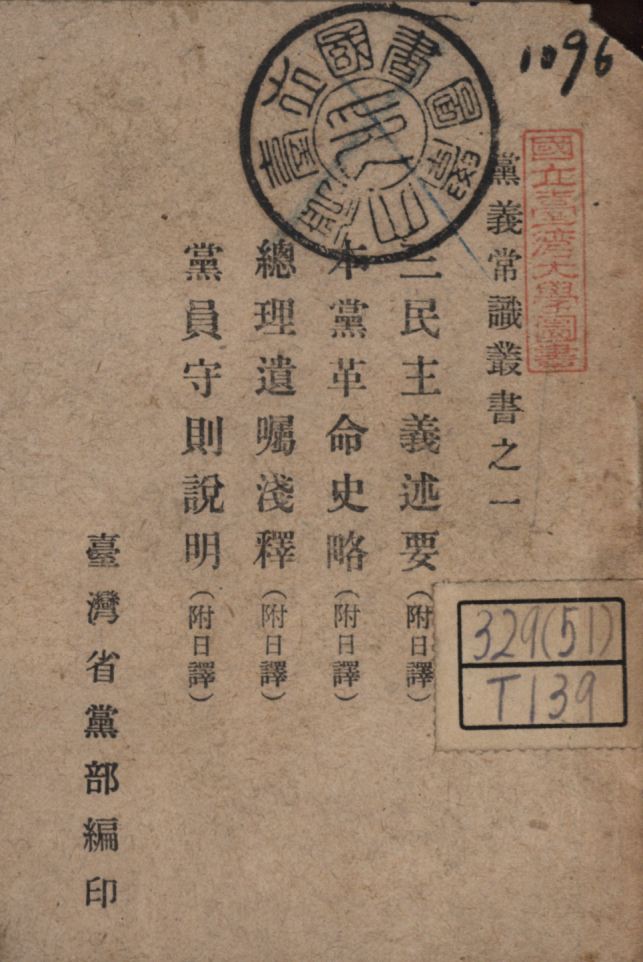 1096
國立臺灣大學圖書
黨義常識叢書之一
三民主義述要(附日譯)
本黨革命史略(附日譯)
總理遺囑淺釋(附日譯)
黨員守則說明(附日譯)
臺灣省黨部編印
329(51)
T139